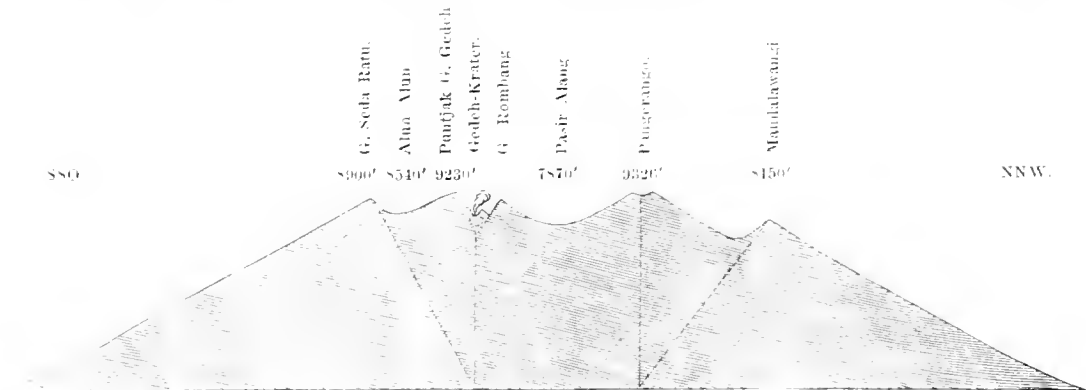 G. Seda Ratu.
Alun Alun
Puntjak G. Gedeh
Gedeh-Krater.
G Rombang
Pasir Alang
Pangerango.
Mandalawangi
SSO
8900' 8540' 9230' 7870' 9326' 8150'
NNW.